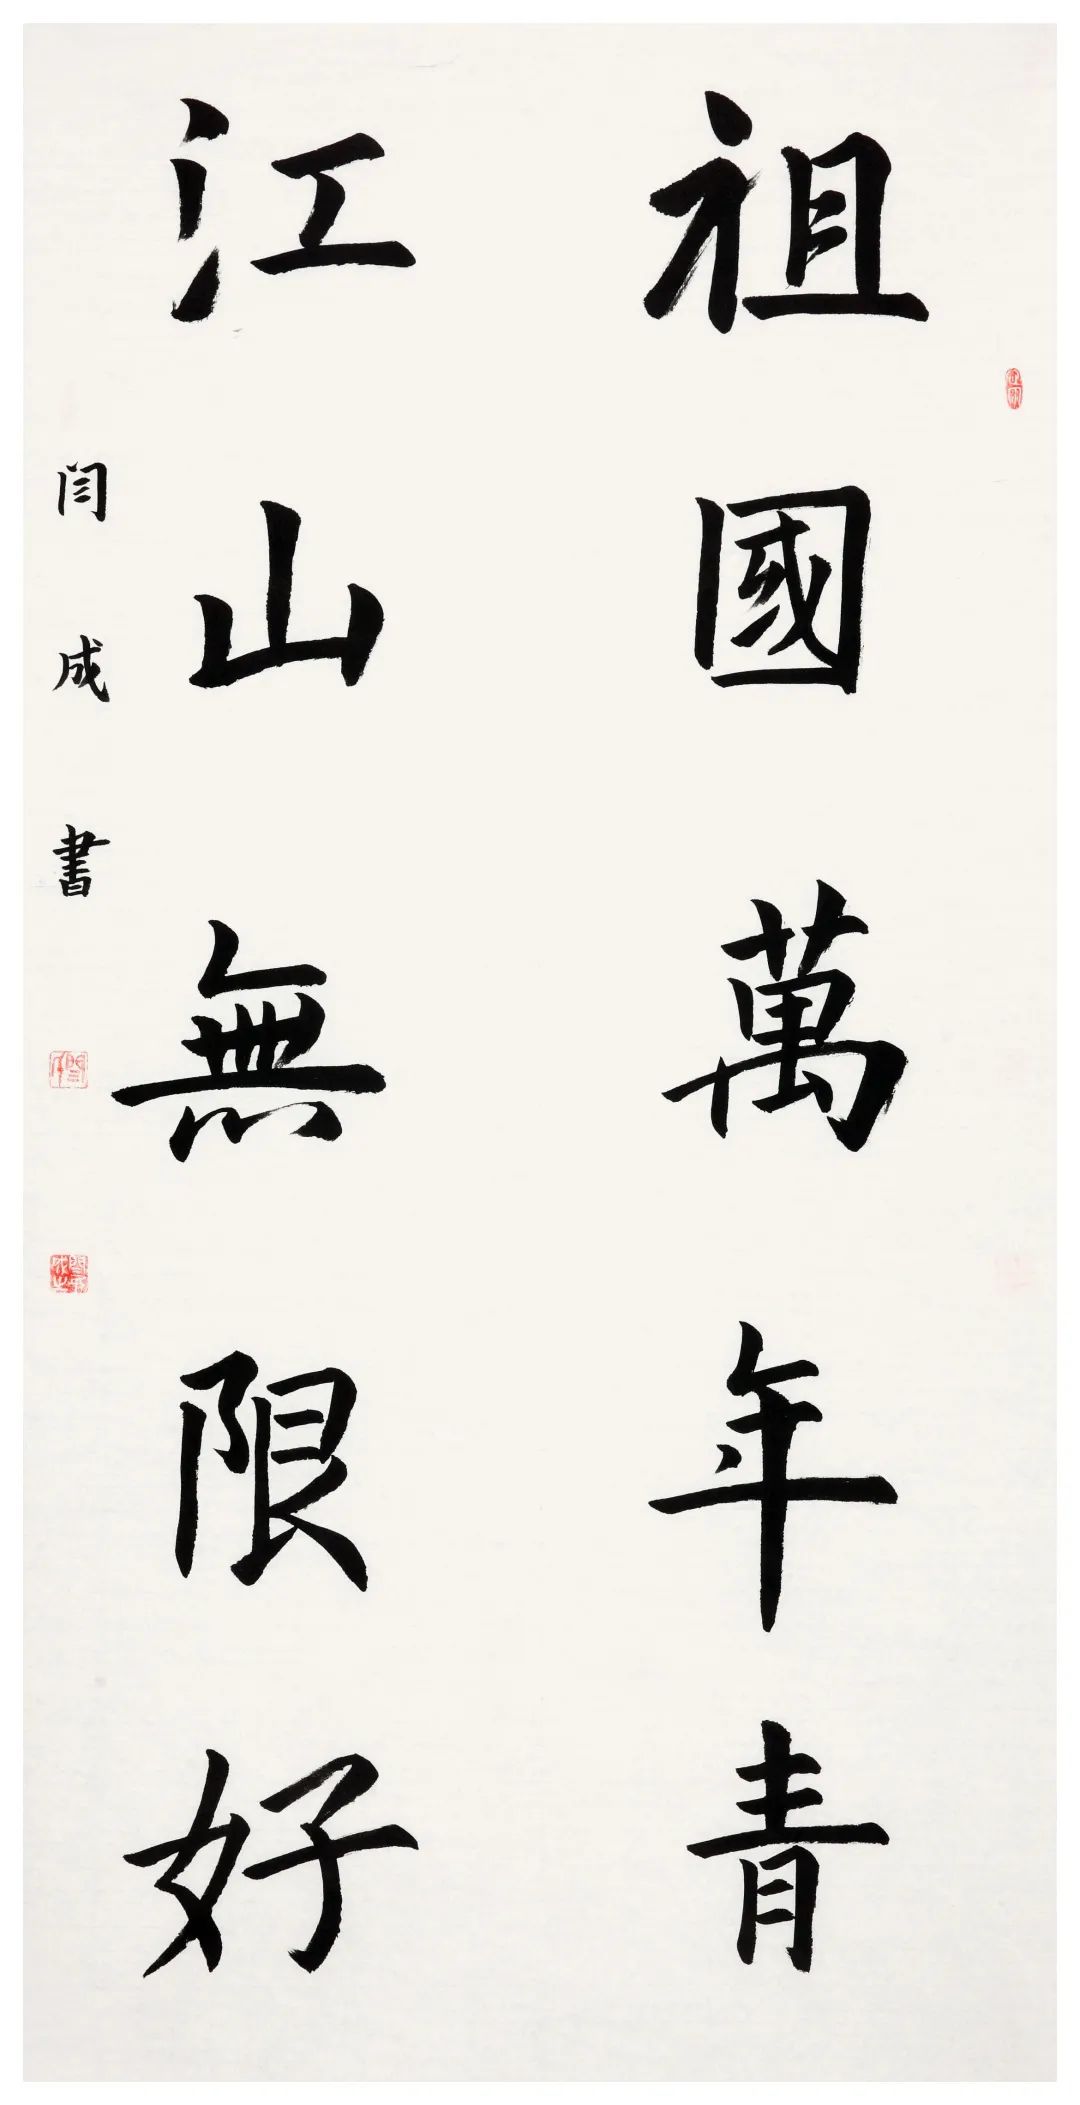 祖國萬年青
江山無限好
闫成書